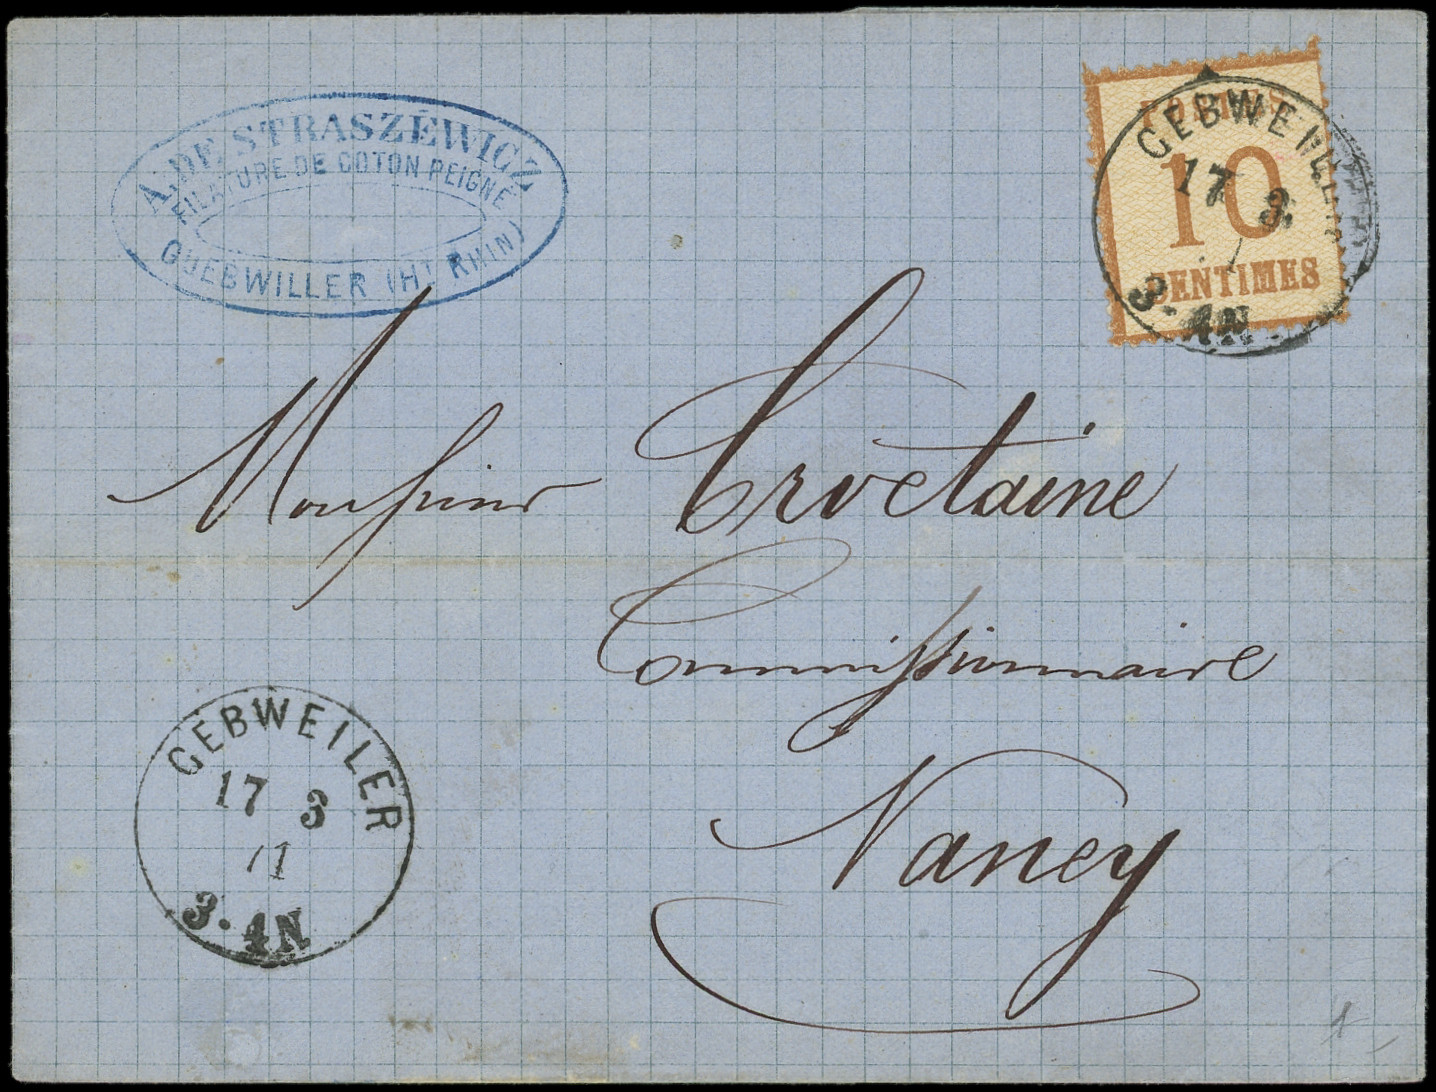 A. DE STRASZÉWICZ
FILATURE DE COTON PEIGNÉ
GUEBWILLER (Ht RHIN)
POSTES
10
CENTIMES
GEBWEILER
17 3
71
3-4N
Monsieur Croctaine
Commissionnaire
Nancy
GEBWEILER
17 3
71
3-4N